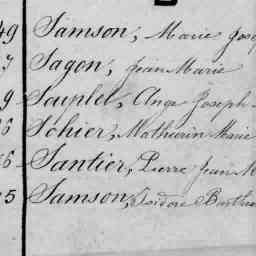 49 Samson, Marie Jose
7 Sagon, Jean Marie
9 Sauplet, Ange Joseph
6 Sohier, Mathurin Marie
6 Santier, Pierre Jean M
5 Samson, Isidore Barthe